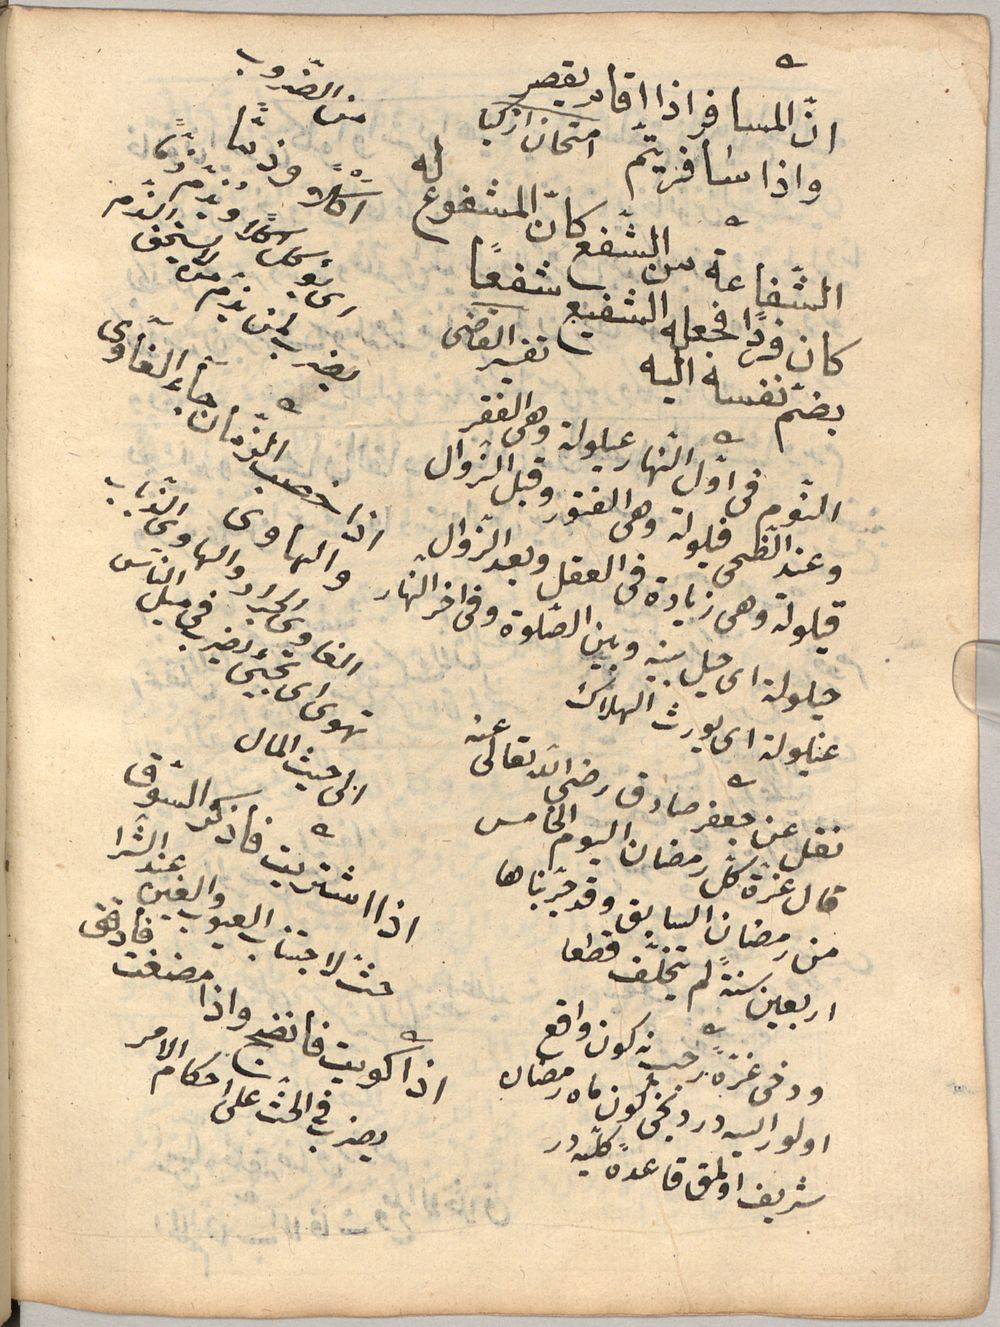 انّ المسافر اذا اقام يقصر
واذا سافر يتمّ امتحان اذكيا
الشّفاعة من الشّفع كانّ المشفوع له
كان فردًا فجعله الشفيع شفعًا
بضمّ نفسه اليه تفسير القاضى
النّوم فى اوّل النهار عيلولة وهى الفقر
وعند الضّحى فيلولة وهى الفتور وقبل الزّوال
قيلولة وهى زيادة فى العقل وبعد الزّوال
حيلولة اى حيل بينه وبين الصّلوة وفى اخر النهار
غيلولة اى يورث الهلاك
نقل عن جعفر صادق رضى الله تعالى عنه
قال غرّة كلّ رمضان اليوم الخامس
من رمضان السابق وقد جرّبناها
اربعين سنة لم يتخلّف قطعا
ودخى غرّۀ رجب نه كون واقع
اولور ايسه دردنجى كون ماه رمضان
شريف اولمق قاعدۀ كليّه در
من الضّروب
اكلاً وذمًّا
اى يؤكل اكلاً ويذمّ ذمًّا
يضرب لمن يذمّ من لا يستحق الذّم
اذا خصب الزّمان جاء الغاوى
والهاوى
الغاوى الجراد والهاوى الذّباب
تهوى اى تجيئ يضرب فى ميل النّاس
الى حيث المال
اذا اشتريت فاذكر السّوق
حثّ لاجتناب العيوب والغبن عند الشّرا
اذا كويت فانضج واذا مضغت فادقق
يضرب فى الحثّ على احكام الامر